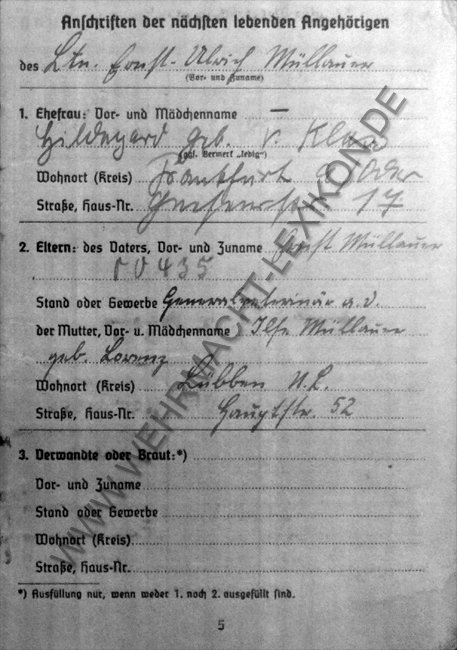 Anschriften der nächsten lebenden Angehörigen
des Ltn. Ernst-Ulrich Müllauer
(Vor- und Zuname)
1. Ehefrau: Vor- und Mädchenname —
Hildegard geb. v.
(ggf. Vermerk „ledig")
Wohnort (Kreis) Frankfurt a/Oder
Straße, Haus-Nr. 17
2. Eltern: des Vaters, Vor- und Zuname Ernst Müllauer
435
Stand oder Gewerbe Generalveterinär a.D.
der Mutter, Vor- u. Mädchenname) Ilse Müllauer
geb. Lorenz
Wohnort (Kreis) Lübben N.L.
Straße, Haus-Nr. Hauptstr. 52
3. Verwandte oder Braut:*)
Vor- und Zuname
Stand oder Gewerbe
Wohnort (Kreis)
Straße, Haus-Nr.
*) Ausfüllung nur, wenn weder 1. noch 2. ausgefüllt sind.
5
WWW.WEHRMACHT-LEXIKON.DE